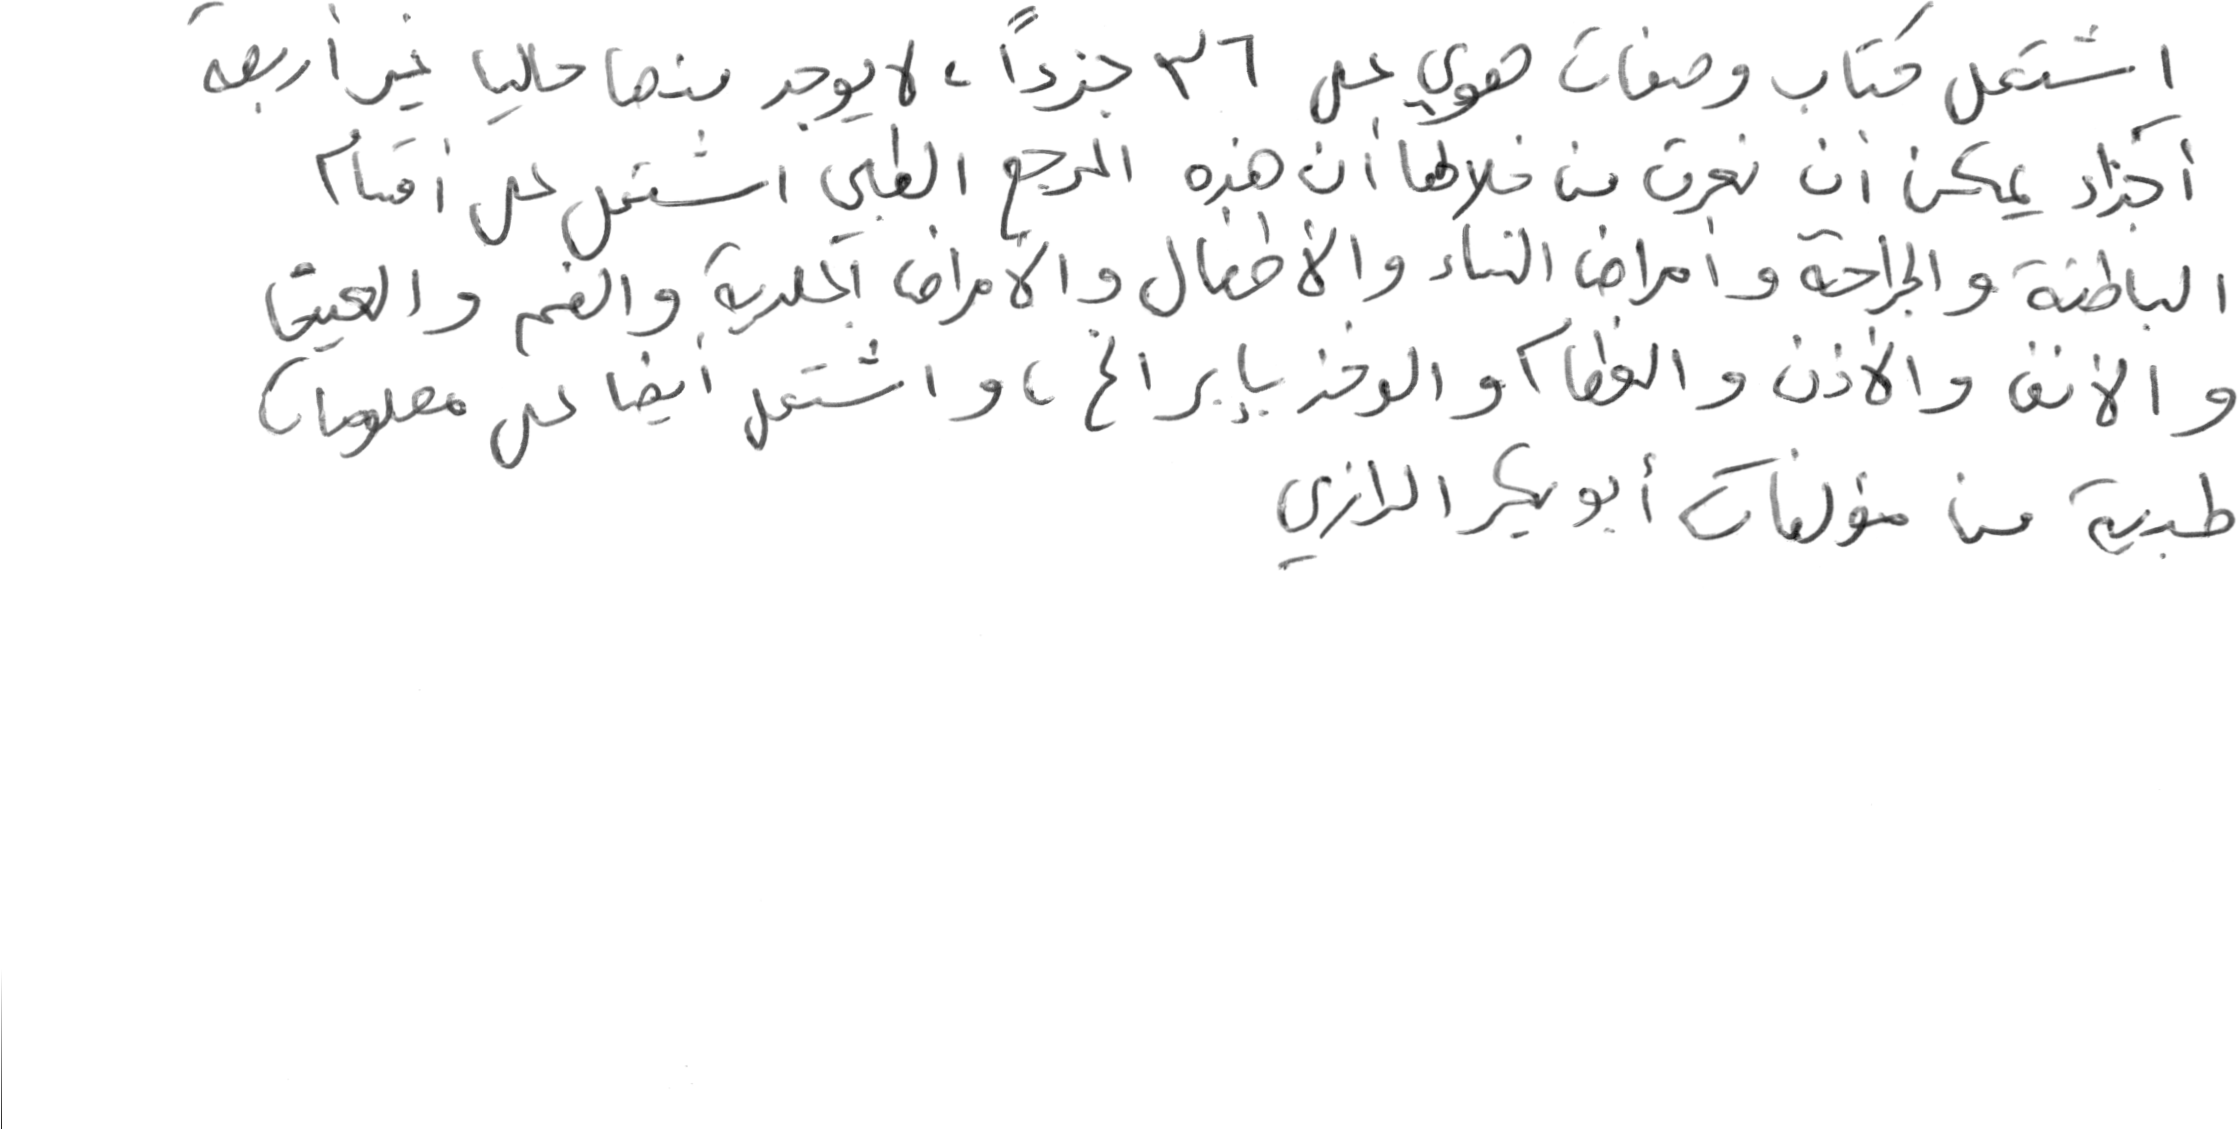 اشتمل كتاب وصفات هوي على ٣٦ جزءاً، لا يوجد منها حاليا غير أربعة
أجزاء يمكن أن نعرف من خلالها أن هذه المرجع الطبي اشتمل على أقسام
الباطنة والجراحة وأمراض النساء والأطفال والأمراض الجلدية والفم والعيون
والأنف والأذن والعظام والوخز بإبر الخ، واشتمل أيضا على معلومات
طبية من مؤلفات أبو بكر الرازي